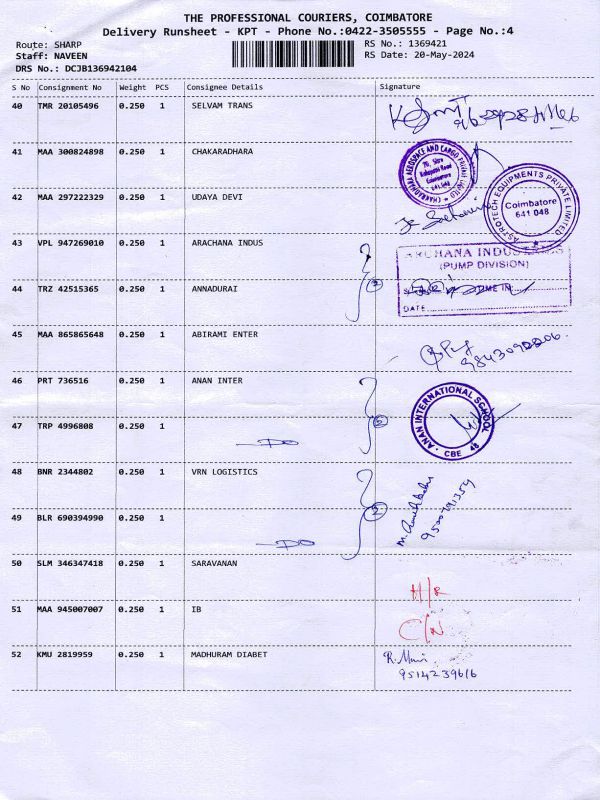 THE PROFESSIONAL COURIERS, COIMBATORE
Delivery Runsheet - KPT - Phone No.:0422-3505555 - Page No.:4
Route: SHARP
Staff: NAVEEN
DRS No.: DCJB136942104
RS No.: 1369421
RS Date: 20-May-2024
S No Consignment No Weight PCS Consignee Details Signature
40 TMR 20105496 0.250 1 SELVAM TRANS
41 MAA 300824898 0.250 1 CHAKARADHARA
CHAKARADHARA AEROSPACE AND CARGO PRIVATE LIMITED
Coimbatore
641 048
42 MAA 297222329 0.250 1 UDAYA DEVI
ASTROTECH EQUIPMENTS PRIVATE LIMITED
Coimbatore
641 048
43 VPL 947269010 0.250 1 ARACHANA INDUS
ARCHANA INDUS
(PUMP DIVISION)
44 TRZ 42515365 0.250 1 ANNADURAI
2
TIME IN
DATE
45 MAA 865865648 0.250 1 ABIRAMI ENTER
46 PRT 736516 0.250 1 ANAN INTER
ANAN INTERNATIONAL SCHOOL
CBE 48
47 TRP 4996808 0.250 1
DO
48 BNR 2344802 0.250 1 VRN LOGISTICS
2
9500791354
49 BLR 690394990 0.250 1
DO
50 SLM 346347418 0.250 1 SARAVANAN
H/R
51 MAA 945007007 0.250 1 IB
C/N
52 KMU 2819959 0.250 1 MADHURAM DIABET
R. Muni
9514239616